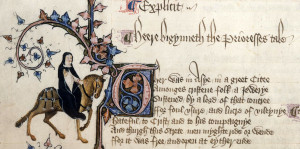 Explicit
Heere bigynneth the Prioresses tale
Ther was in Asye in a greet Citee
Amonges cristene folk a Jewerye
Sustened by a lord of that contree
ffor foul vsure and lucre of vileynye
Hateful to Crist and to his compaignye
And thurgh this strete men myghte ride or wende
ffor it was free and open at eyther ende